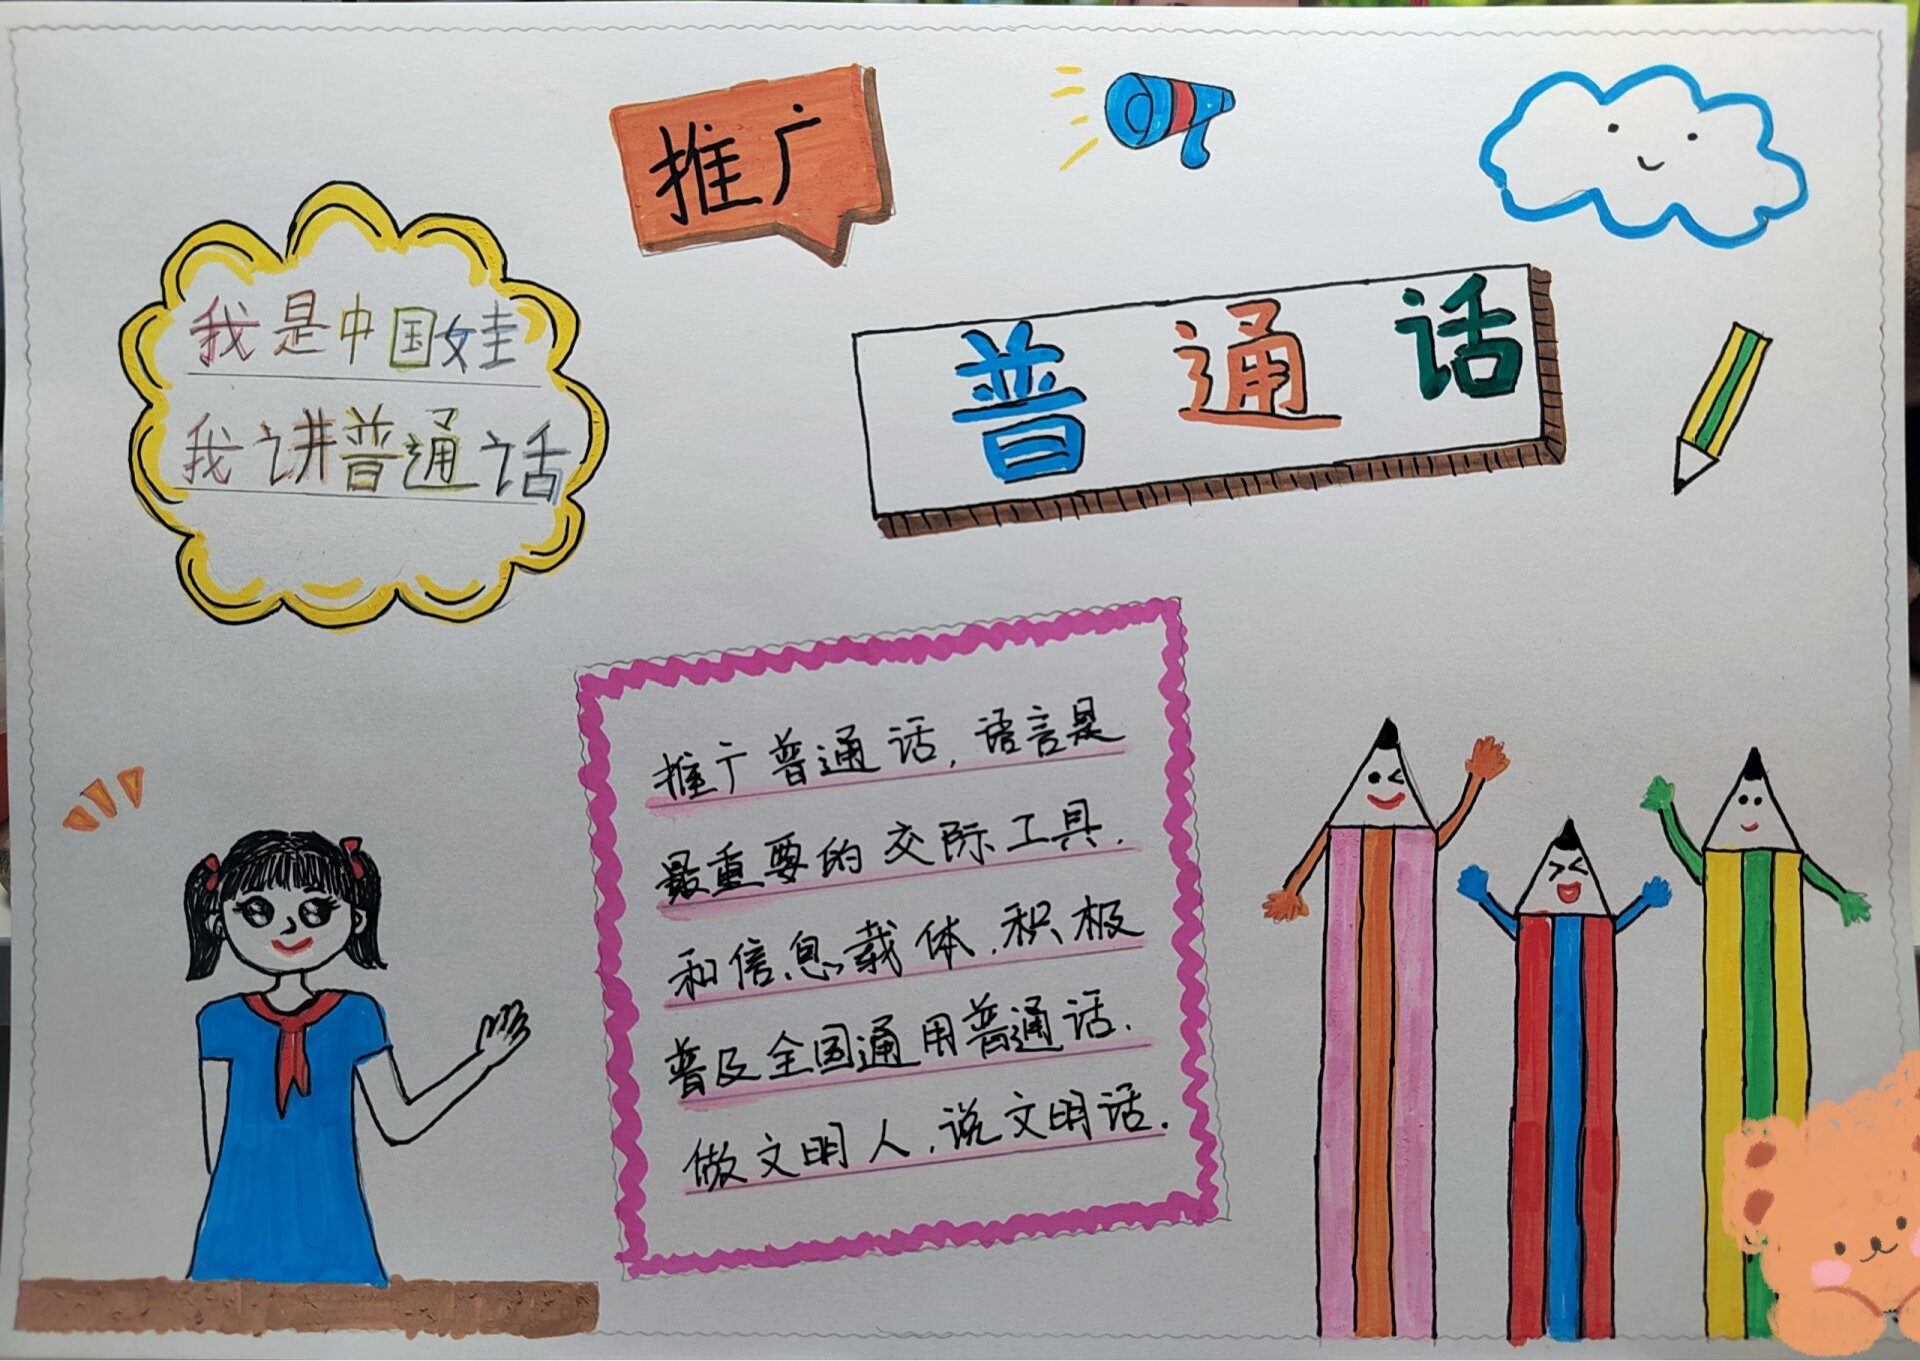 推广
普通话
我是中国娃
我讲普通话
推广普通话,语言是
最重要的交际工具.
和信息载体,积极
普及全国通用普通话.
做文明人,说文明话.